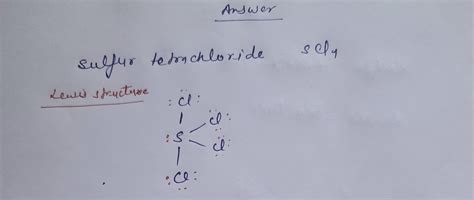 Answer
sulfur tetrachloride SCl4
Lewis structure
:Cl:
Cl:
:S
Cl:
:Cl: